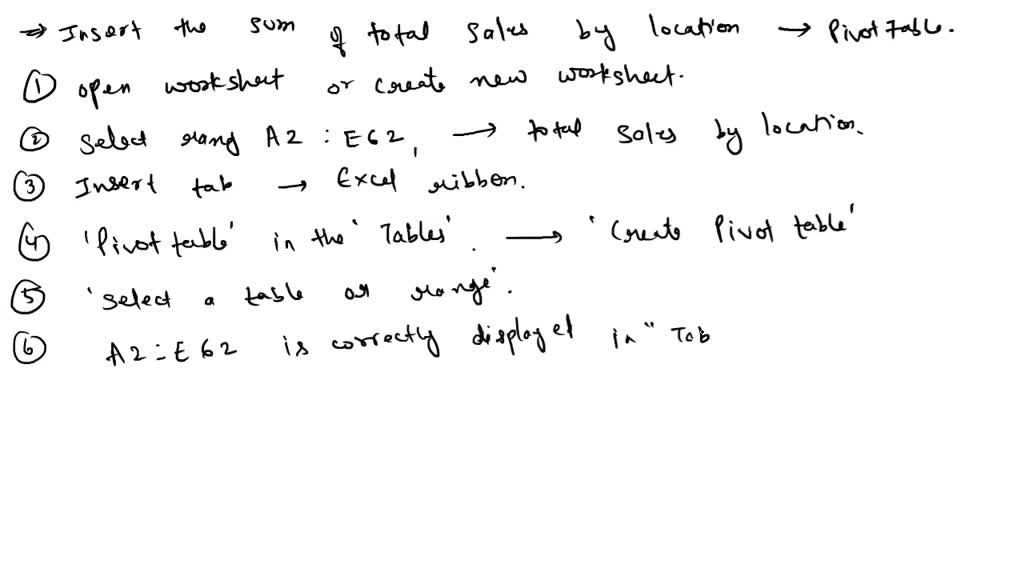 ⇒ Insert the sum of total sales by location → Pivot table.
① open worksheet or create new worksheet.
② Select rang A2 : E62, → total sales by location.
③ Insert tab → Excel ribbon.
④ 'Pivot table' in the 'Tables'. → 'Create Pivot table'
⑤ 'Select a table or range'.
⑥ A2:E62 is correctly displayed in "Tab